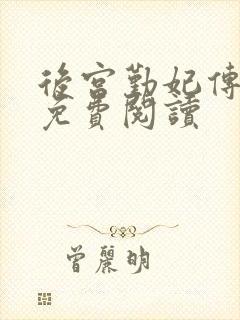 後宮勤妃傳
免費閱讀
曾麗明